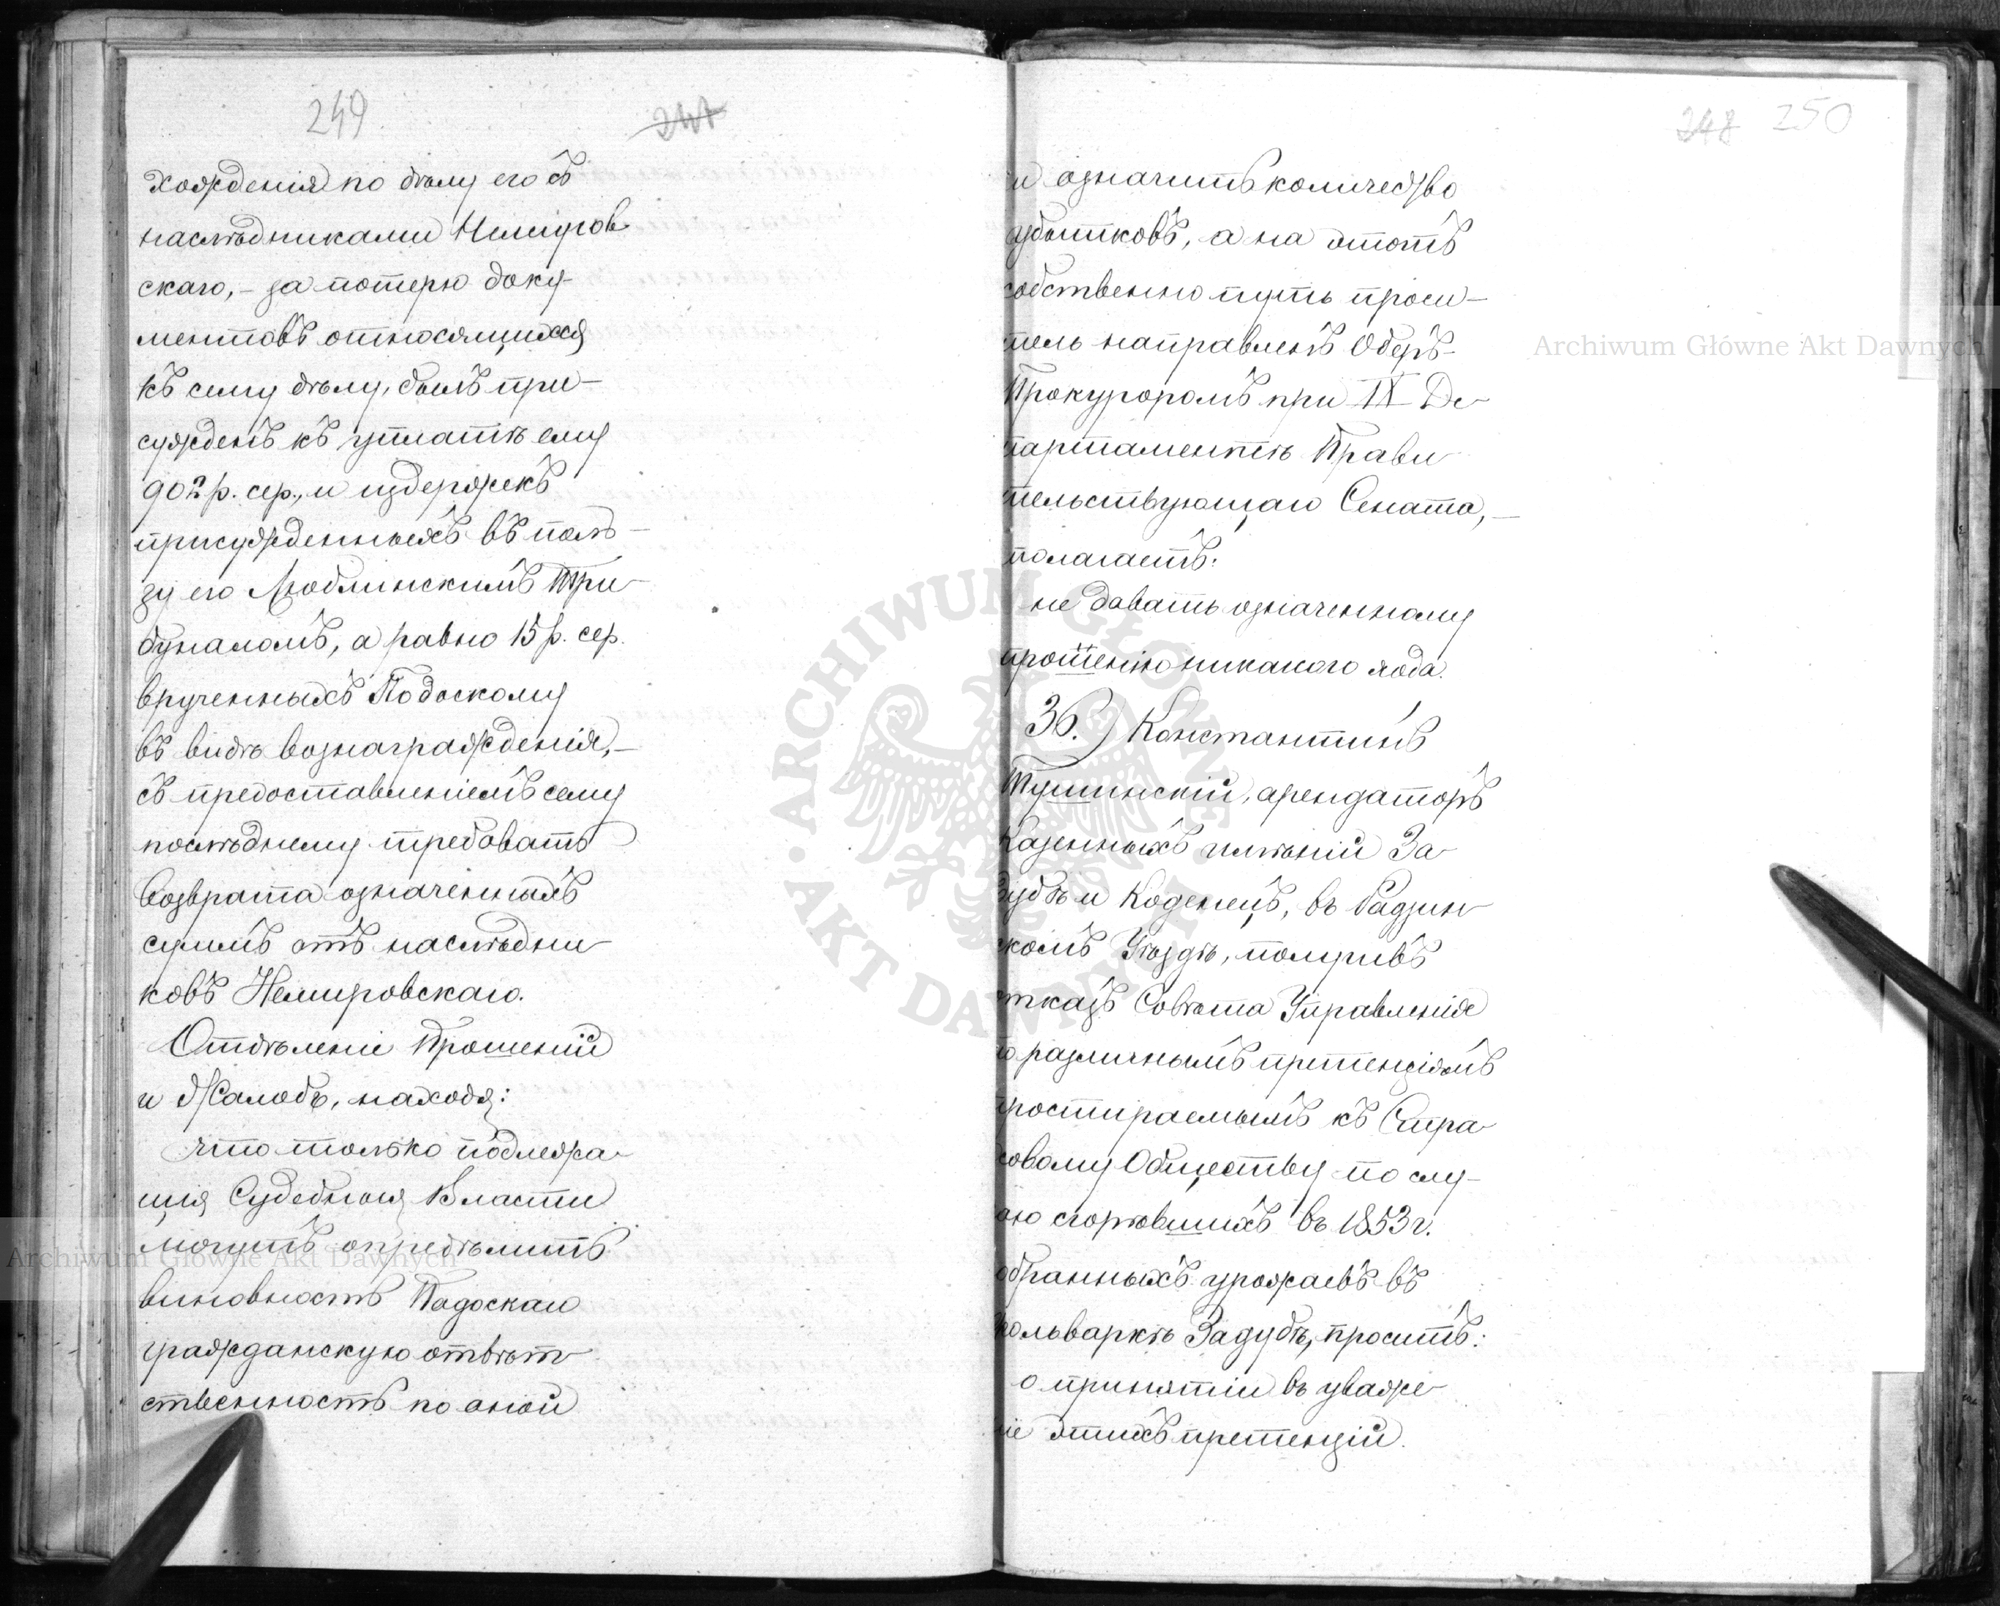 249
247
хожденія по дѣлу его съ
наслѣдниками Немиров
скаго, – за потерю доку-
ментовъ относящихся
къ сему дѣлу, былъ при-
сужденъ къ уплатѣ ему
902 р. сер., и издержекъ
присужденныхъ въ поль-
зу его Люблинскимъ Три
буналомъ, а равно 15 р. сер.
врученныхъ Подоскому
въ видѣ вознагражденія, –
съ предоставленіемъ сему
послѣднему требовать
возврата означенныхъ
суммъ отъ наслѣдни
ковъ Немировскаго.
Отдѣленіе Прошеній
и Жалобъ, находя:
что только подлежа
щія Судебныя Власти
могутъ опредѣлить
виновность Подоскаго
гражданскую отвѣт
ственность по оной
248 250
и означить количество
убытковъ, а на этотъ
собственно путь проси-
тель направленъ Оберъ-
Прокуроромъ при IX Де
партаментѣ Прави
тельствующаго Сената, –
полагаетъ:
не давать означенному
прошенію никакого хода.
36.) Константинъ
Тушинскій, арендаторъ
Казенныхъ имѣній За
дубѣ и Коденецъ, въ Радзин
скомъ Уѣздѣ, получивъ
отказъ Совѣта Управленія
по различнымъ претензіямъ
простираемымъ къ Стра
ховому Обществу по слу-
чаю сгорѣвшихъ въ 1853 г.
собранныхъ урожаевъ въ
фольваркѣ Задубѣ, проситъ:
о принятіи въ уваже
ніе этихъ претензій.
Archiwum Główne Akt Dawnych
Archiwum Główne Akt Dawnych
ARCHIWUM GŁÓWNE · AKT DAWNYCH ·